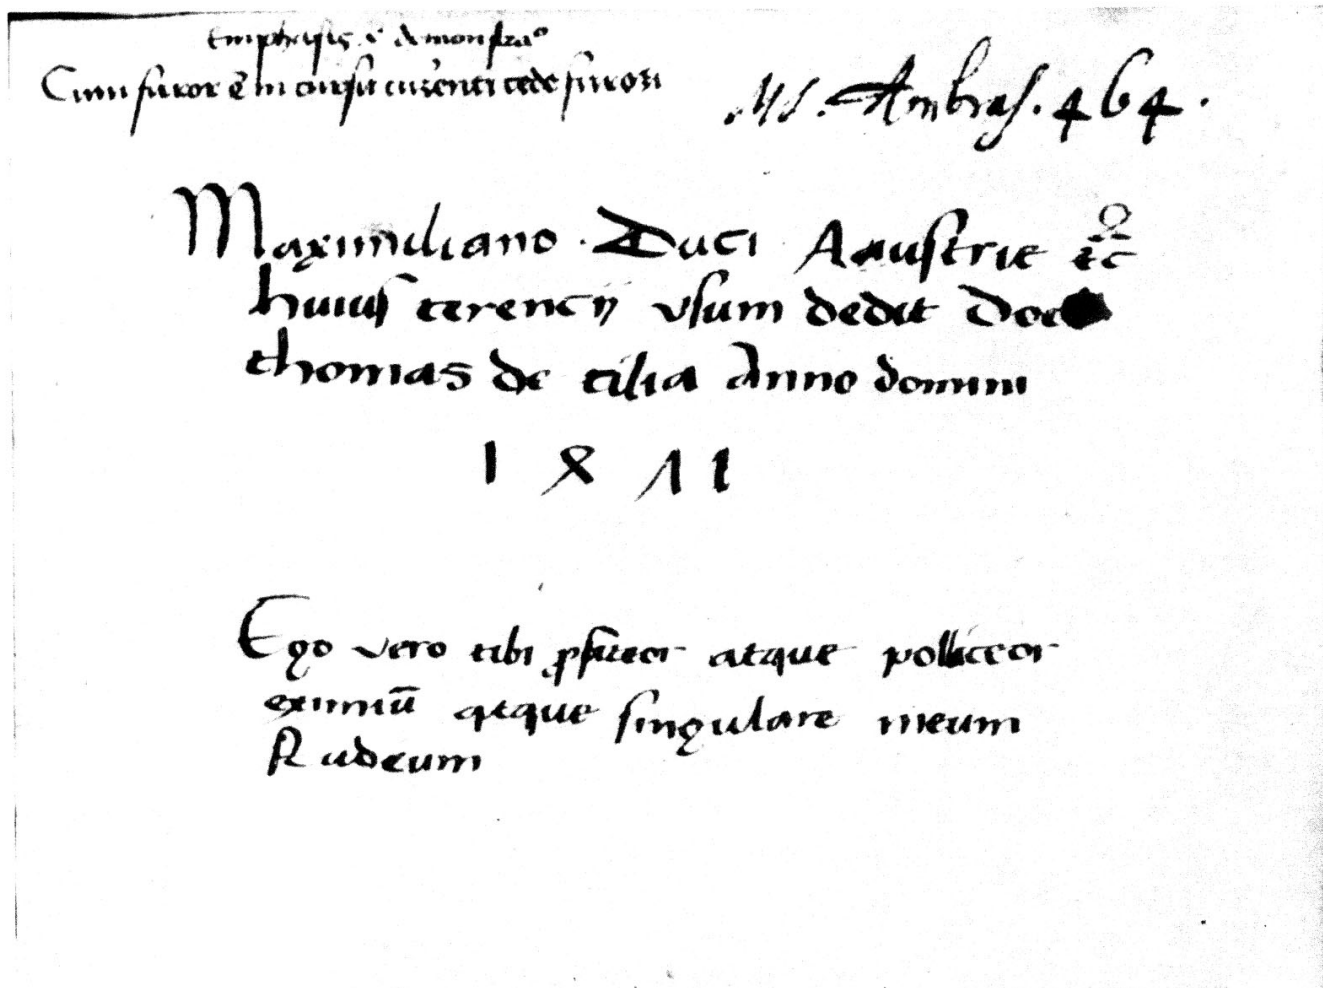 Emphasis ē demonstra°
Cum furor ē in cursu currenti cede furori
MS. Ambras. 464.
Maximiliano Duci Aaustrie ꝛc̄
huius terencij vsum dedit
thomas de cilia Anno domini
1 8 Λ 1
Ego vero tibi ꝓfiteor atque polliceor
eximiū atque singulare meum